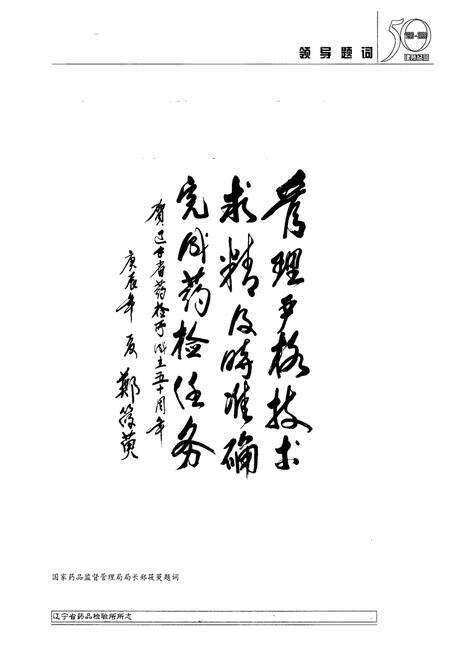 领导题词
50
管理严格技术
求精及时准确
完成药检任务
贺辽宁省药检所成立五十周年
庚辰年夏 郑筱萸
国家药品监督管理局局长郑筱萸题词
辽宁省药品检验所所志